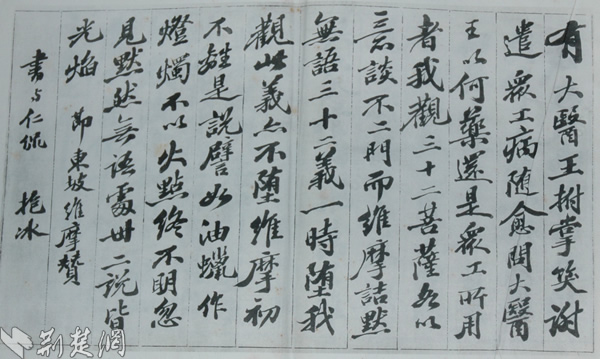 有大醫王拊掌笑謝
遣衆工病随愈問大醫
王以何藥還是衆工所用
者我觀三十二菩薩各以
意談不二門而維摩詰默
無語三十二義一時墮我
觀此義亦不墮維摩初
不離是説譬如油蠟作
燈燭不以火點終不明忽
見默然無語處卅二説皆
光焰 節東坡維摩贊
書与仁侃 抱冰
荆楚網